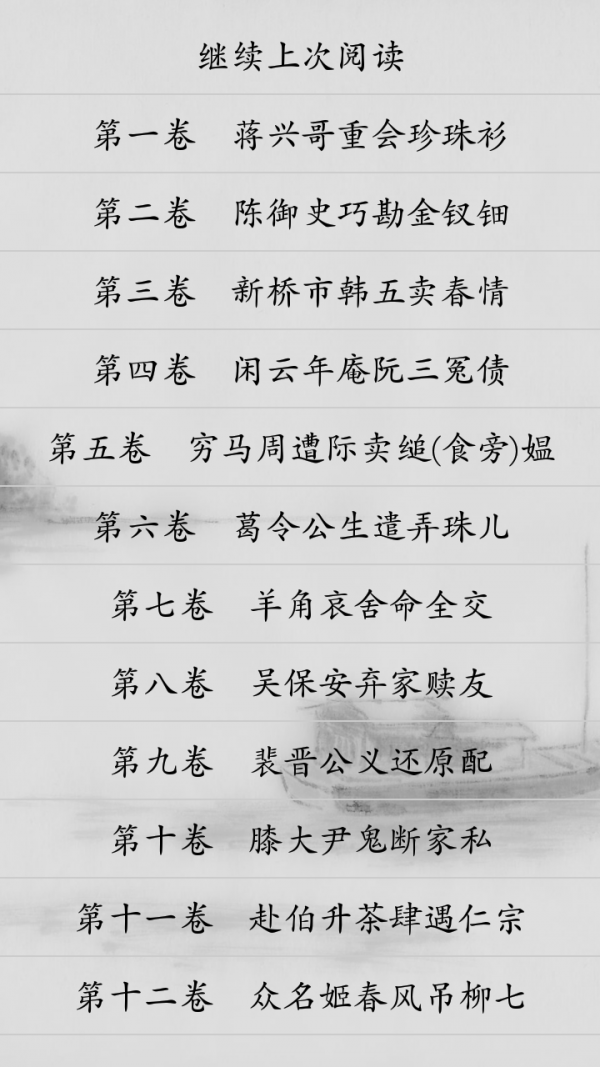 继续上次阅读
第一卷 蒋兴哥重会珍珠衫
第二卷 陈御史巧勘金钗钿
第三卷 新桥市韩五卖春情
第四卷 闲云年庵阮三冤债
第五卷 穷马周遭际卖缒(食旁)媪
第六卷 葛令公生遣弄珠儿
第七卷 羊角哀舍命全交
第八卷 吴保安弃家赎友
第九卷 裴晋公义还原配
第十卷 膝大尹鬼断家私
第十一卷 赴伯升茶肆遇仁宗
第十二卷 众名姬春风吊柳七